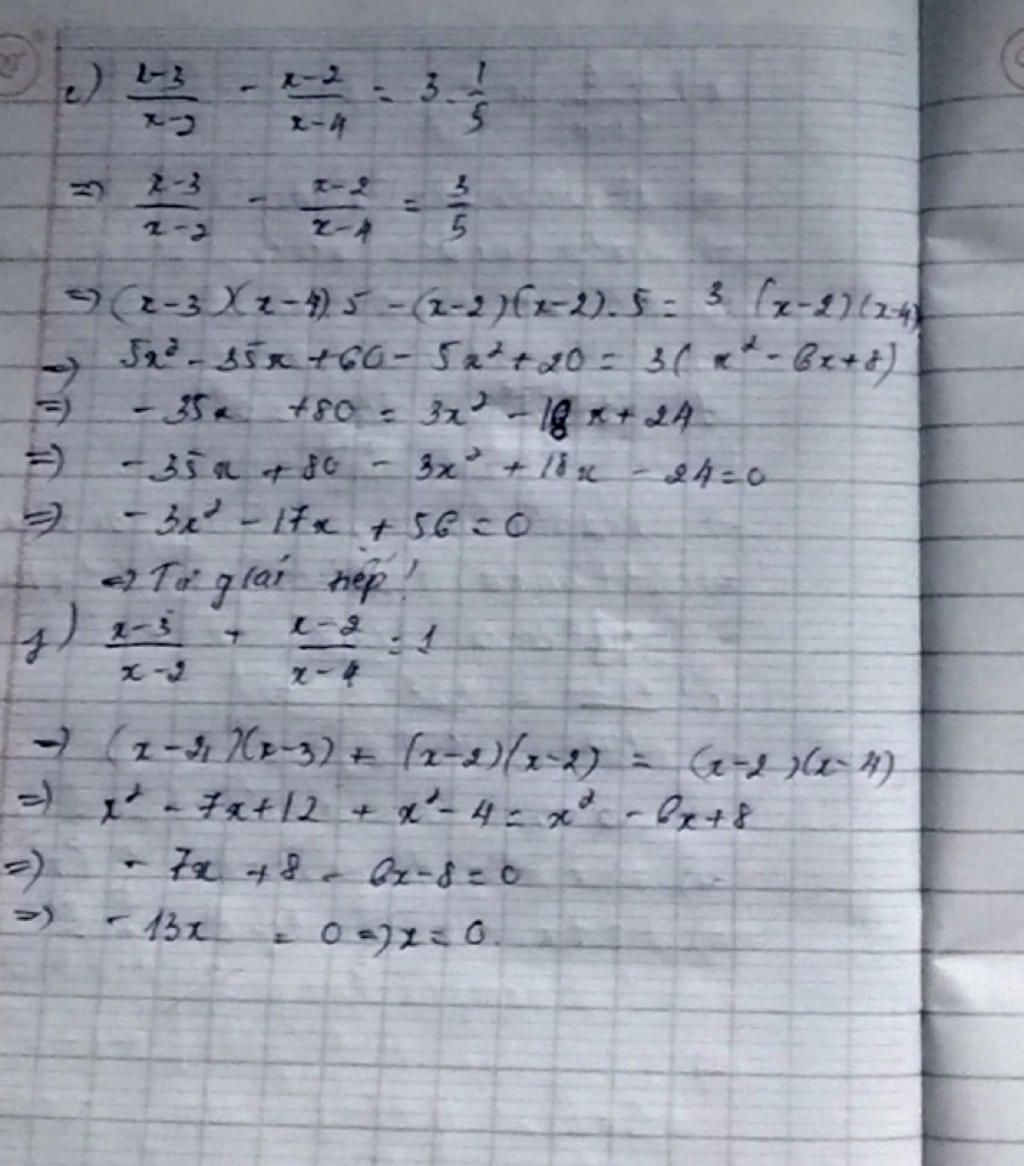 e) \frac{x-3}{x-2} - \frac{x-2}{x-4} = 3 \cdot \frac{1}{5}
=> \frac{x-3}{x-2} - \frac{x-2}{x-4} = \frac{3}{5}
=> (x-3)(x-4) 5 - (x-2)(x-2) . 5 = 3 (x-2)(x-4)
=> 5x² - 35x + 60 - 5x² + 20 = 3( x² - 6x + 8)
=> - 35x + 80 = 3x² - 18x + 24
=> - 35x + 80 - 3x² + 18x - 24 = 0
=> - 3x² - 17x + 56 = 0
=> Tự giải tiếp!
f) \frac{x-3}{x-2} + \frac{x-2}{x-4} = 1
=> (x-4)(x-3) + (x-2)(x-2) = (x-2)(x-4)
=> x² - 7x + 12 + x² - 4 = x² - 6x + 8
=> - 7x + 8 - 6x - 8 = 0
=> - 13x = 0 => x = 0